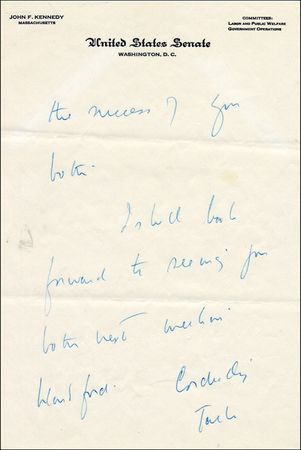 JOHN F. KENNEDY
MASSACHUSETTS
COMMITTEES:
LABOR AND PUBLIC WELFARE
GOVERNMENT OPERATIONS
United States Senate
WASHINGTON, D. C.
the success of you
both.
I shall look
forward to seeing you
both next
Cordially
Jack